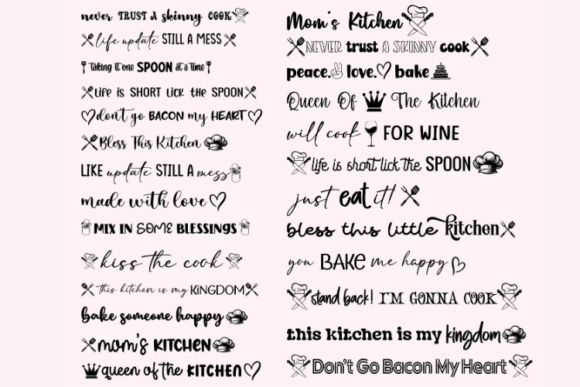 never TRUST A skinny COOK
life update STILL A MESS
taking it one SPOON at a time
Life is SHORT lick the SPOON
don't go BACON my HEART
Bless This Kitchen
LIKE update STILL A mess
made with love
MIX IN SOME BLESSINGS
kiss the cook
this kitchen is my KINGDOM
bake someone happy
mom's KITCHEN
queen of the KITCHEN
Mom's Kitchen
NEVER trust A SKINNY cook
peace. love. bake
Queen Of The Kitchen
will cook FOR WINE
life is short lick the SPOON
just eat it!
bless this little kitchen
you BAKE me happy
stand back! I'M GONNA COOK
this kitchen is my kingdom
Don't Go Bacon My Heart